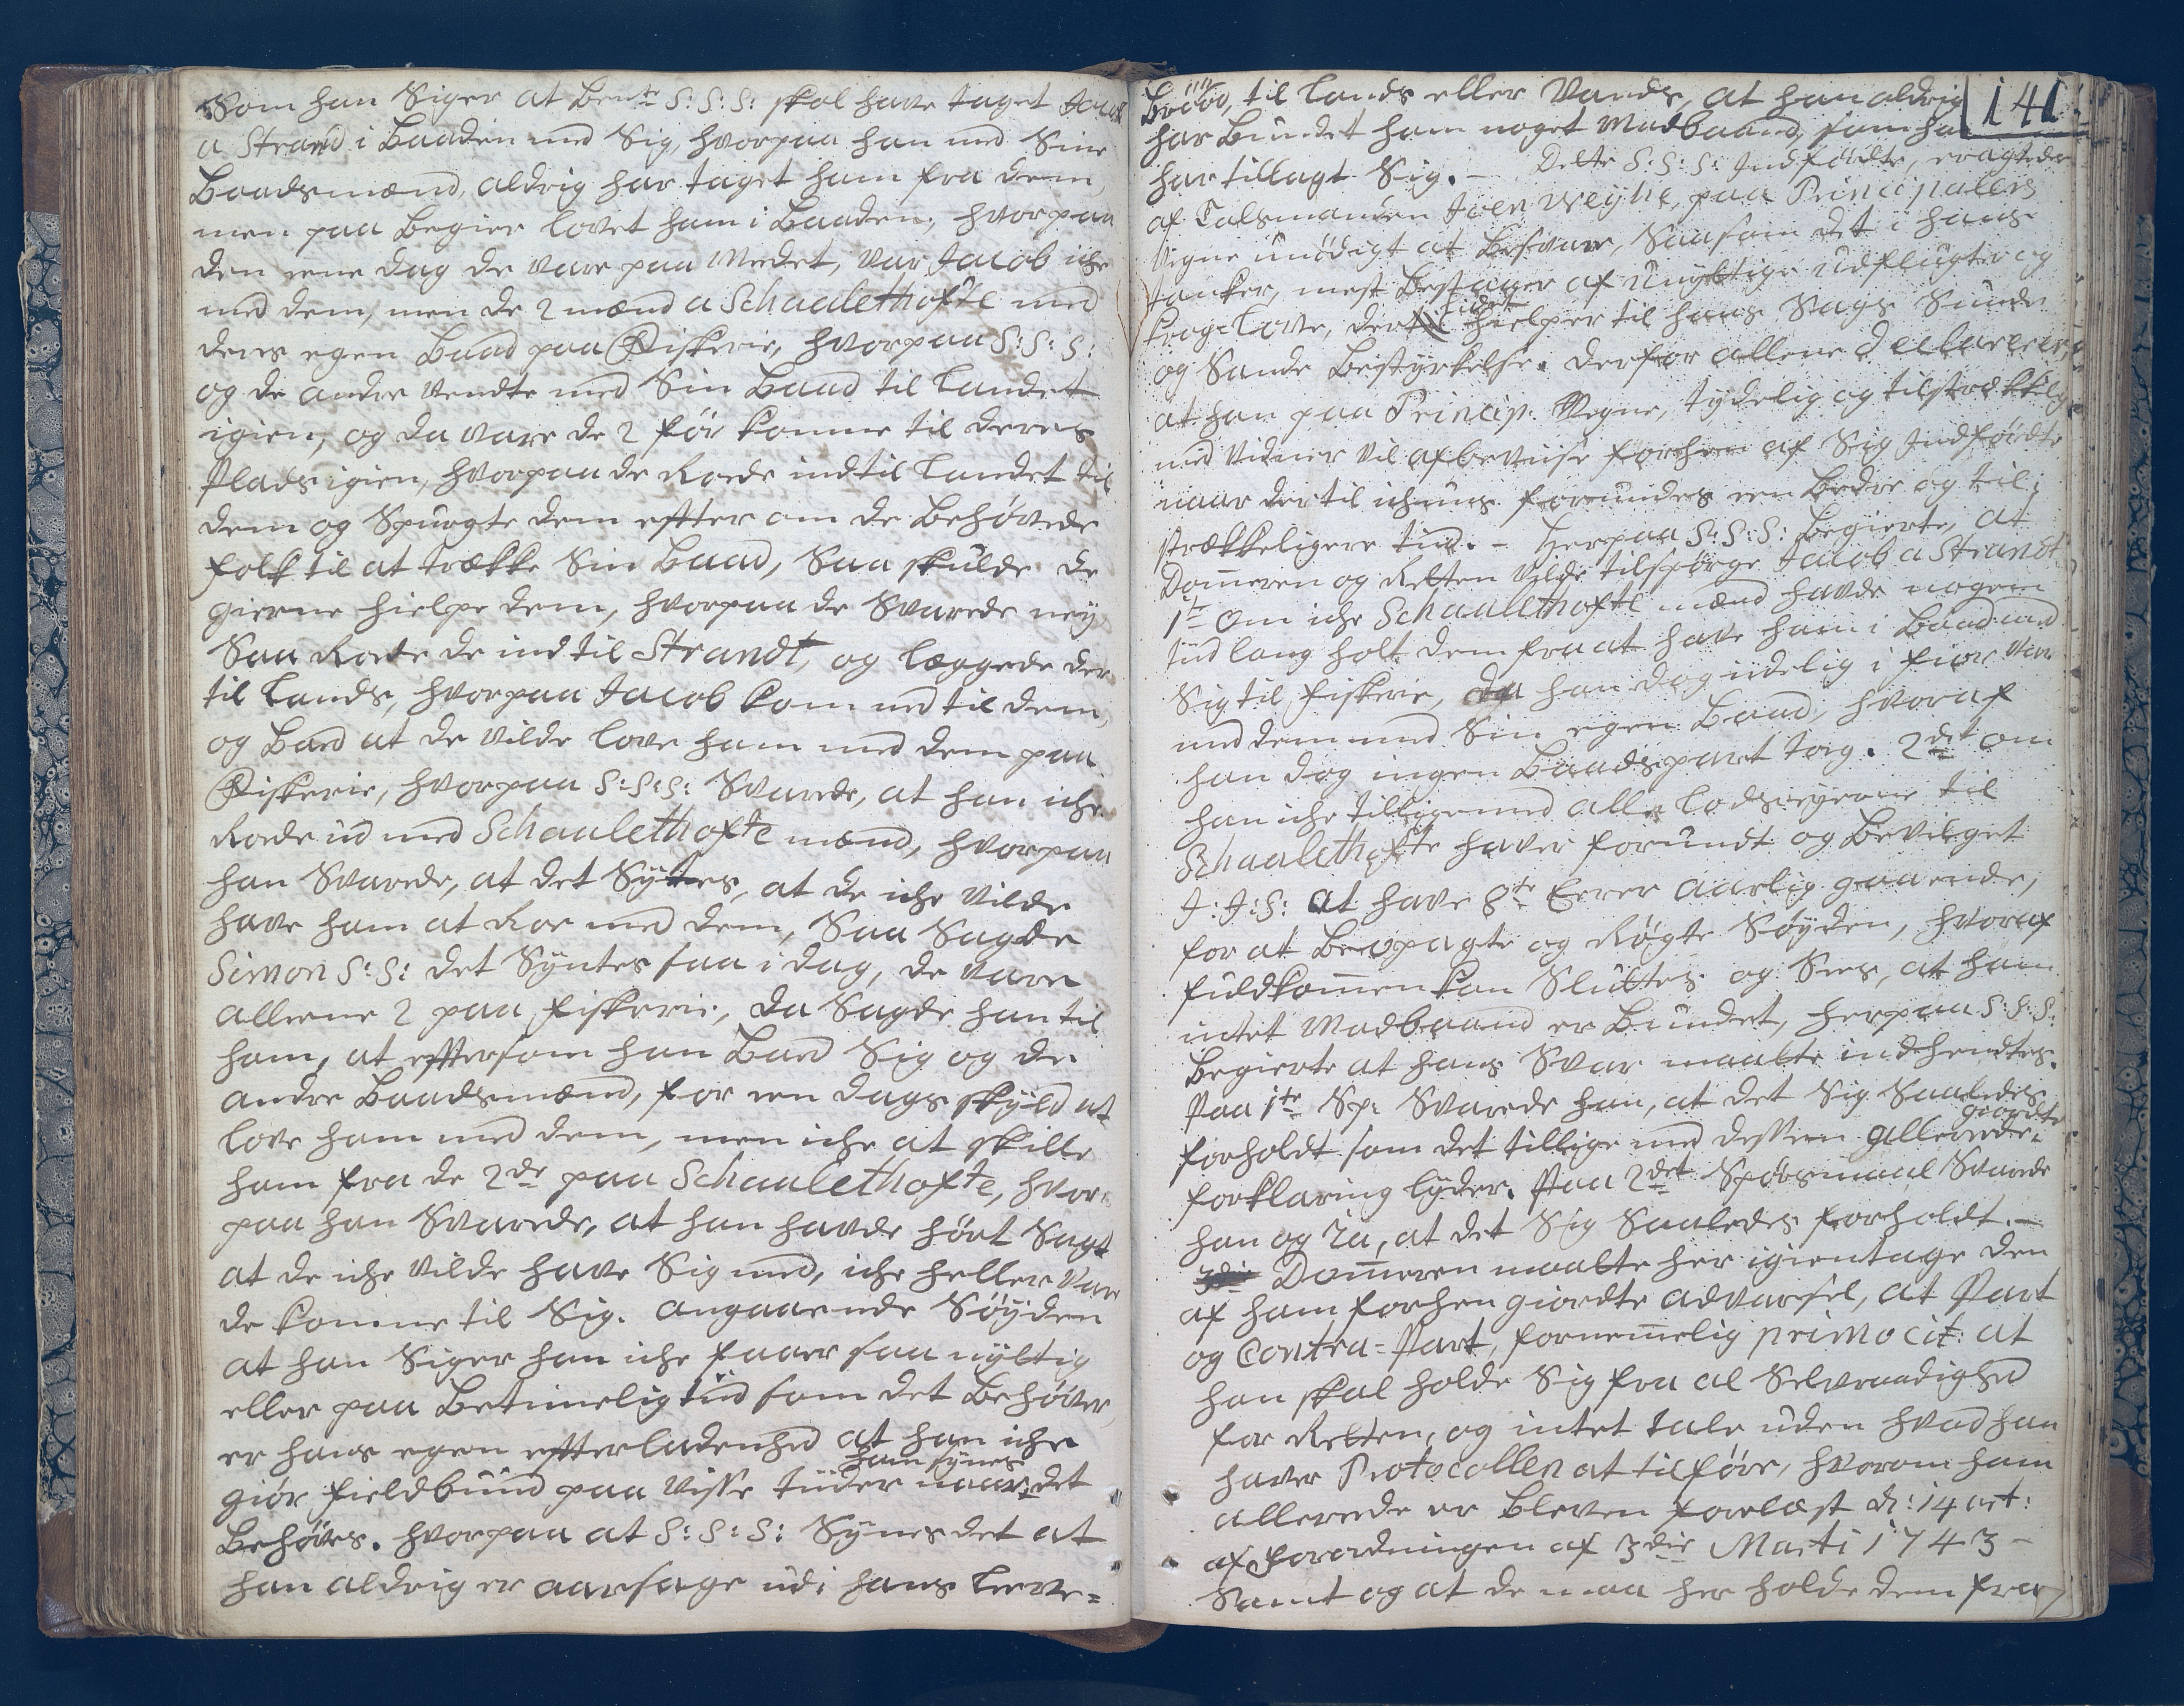 Som han Siger at Bem:te S:S:S: skal have taget Jacob
a Strand i Baaden med Sig, hvorpaa han med Sine
Baadsmænd, aldrig har taget ham fra dem,
men paa Begier lovet ham i Baaden, hvorpaa
den eene dag de vare paa Medet, var Jacob iche
med dem, men de 2 mænd a Schaalethofte med
deres egen Baad paa Fiskerie, hvorpaa S:S:S:
og de andre vendte med Sin Baad til Landet
igien, og da vare de 2 før komne til deres
Plads igien, hvorpaa de Roede indtil Landet til
dem og Spurgte dem efter om de Behøvede
folk til at trække Sin Baad, Saa skulde de
gierne hielpe dem, hvorpaa de Svarede ney
Saa Roede de ind til Strandt, og læggede der
til Lands, hvorpaa Jacob kom ned til dem,
og Bad at de vilde love ham med dem paa
Fiskerie, hvorpaa S:S:S: Svarede, at han iche
Roede ud med Schaalethofte mænd, hvorpaa
han Svarede, at det Syntes, at de iche vilde
have ham at Roe med dem, Saa Sagde
Simon S:S: det Syntes saa i dag, de vare
alleene 2 paa fiskerie, da Sagde han til
ham, at effterfom han Bad Sig og de
andre Baadsmænd, for een dags skyld at
love ham med dem, men iche at skille
ham fra de 2de paa Schaalethofte, hvor-
paa han Svarede, at han havde hørt Sagt
at de iche vilde have Sig med, iche heller var
de komne til Sig. angaaende Søyden
at han Siger han iche faaer saa nyttig
eller paa Betimelig tiid som det Behøver,
er hans egen effterladenhed at han iche
ham synes
giør fieldbuud paa visse tiider naar det
Behøves. hvorpaa at S:S:S: Synes det at
han aldrig er aarsage udi hans Leve=
141
Brød, til Lands eller Vands, at han aldrig
har Bundet ham noget Madbaand, som han
har tillagt Sig. – Dette S:S:S: Indførdte, eragtede
af Talsmanden Joen Weyhe, paa Principalens
Vegne unødigt at Besvare, Saasom det i hans
tanker, mest Bestaaer af unyttige udflugter og
intet
hielper til hans Sags Sunde
og Sande Bestyrkelse. derfor allene declarerer,
at han paa Princip: Vegne, tydelig og tilstrækkelig
med vidner vil afbeviise forhen af Sig Indførdte
naar dertil ichuns forundes een Bedre og til-
strækkeligere tiid. – Herpaa S:S:S: Begierte, at
Domeren og Retten vilde tilspørge Jacob a Strandt
1te Om iche Schaalethofte mænd havde nogen
tiid lang holt dem fra at have ham i Baad med
Sig til fiskerie, da han dog iidelig i fior var
med dem med Sin egen Baad, hvoraf
han dog ingen Baadspart tog. 2det om
han iche tilligemed alle Lodseyerne til
Schaalethofte haver forundt og Bevilget
J:J:S: at have 8te Eerer aarlig gaaende,
for at Beopagte og Røgte Søyden, hvoraf
fuldkomen kan Sluttes og Sees, at ham
intet Madbaand er Bundet, herpaa S:S:S:
Begierte at hans Svar maatte indhendtes.
Paa 1te Sp: Svarede han, at det Sig Saaledes
giordte
forholdt som det tillige med dessen allerede
forklaring lyder. Paa 2det Spørsmaal Svarede
han og Ja, at det Sig Saaledes forholdt. –
Domeren maatte her igientage den
af ham forhen giordte advarsel, at Part
og Contra-Part, fornemelig primo cit: at
han skal holde Sig fra al Selvraadighed
for Retten, og intet tale uden hvad han
haver Protocollen at tilføre, hvorom ham
allerede er Bleven forelæst d: 14 art:
af forordningen af 3die Marti 1743 –
Samt og at de maa her holde dem fra